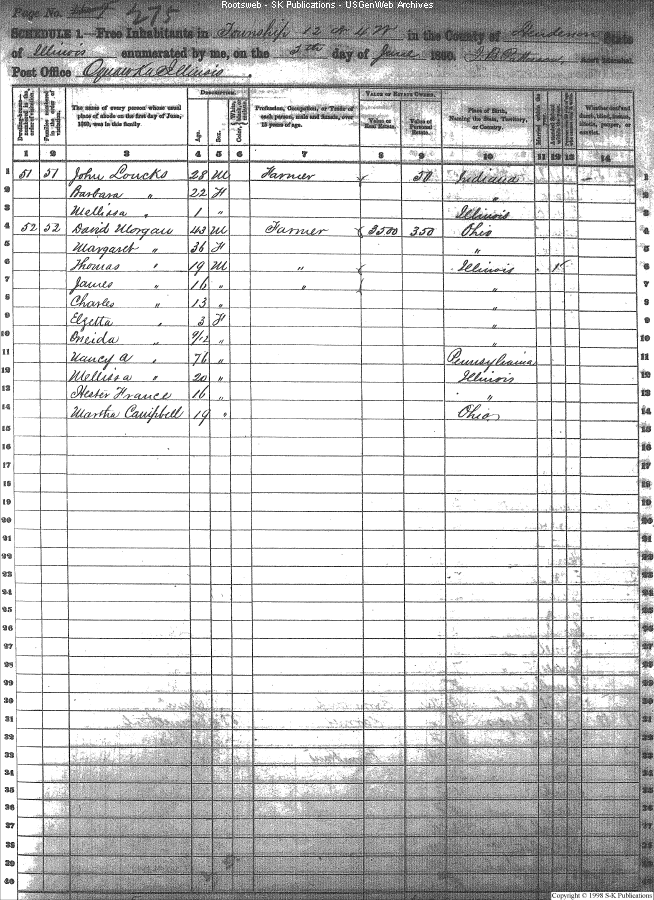 Rootsweb - SK Publications - USGenWeb Archives
Page No. 275
SCHEDULE 1.—Free Inhabitants in Township 12 N 4 W in the County of Henderson State
of Illinois enumerated by me, on the 5th day of June 1860. Ass't Marshal.
Post Office Oquawka Illinois.
DESCRIPTION. VALUE OF ESTATE OWNED.
The name of every person whose usual place of abode on the first day of June, 1860, was in this family. Age. Sex. Profession, Occupation, or Trade of each person, male and female, over 15 years of age. Value of Real Estate. Value of Personal Estate. Place of Birth, Naming the State, Territory, or Country.
1 2 3 4 5 6 7 8 9 10 11 12 13 14
1 51 51 John Loucks 28 M Farmer 50 Indiana 1
2 Barbara " 22 F " 2
3 Mellissa " 1 " Illinois 3
4 52 52 David Morgan 43 M Farmer 2500 350 Ohio 4
5 Margaret " 36 F " 5
6 Thomas " 19 M " Illinois 1 6
7 James " 16 " " " 7
8 Charles " 13 " " 8
9 Elzetta " 3 F " 9
10 Oneida " 9/12 " " 10
11 Nancy A " 76 " Pennsylvania 11
12 Mellissa " 20 " Illinois 12
13 Hester France 16 " " 13
14 Martha Campbell 19 " Ohio 14
15 15
16 16
17 17
18 18
19 19
20 20
21 21
22 22
23 23
24 24
25 25
26 26
27 27
28 28
29 29
30 30
31 31
32 32
33 33
34 34
35 35
36 36
37 37
38 38
39 39
40 40
Copyright © 1998 S-K Publications